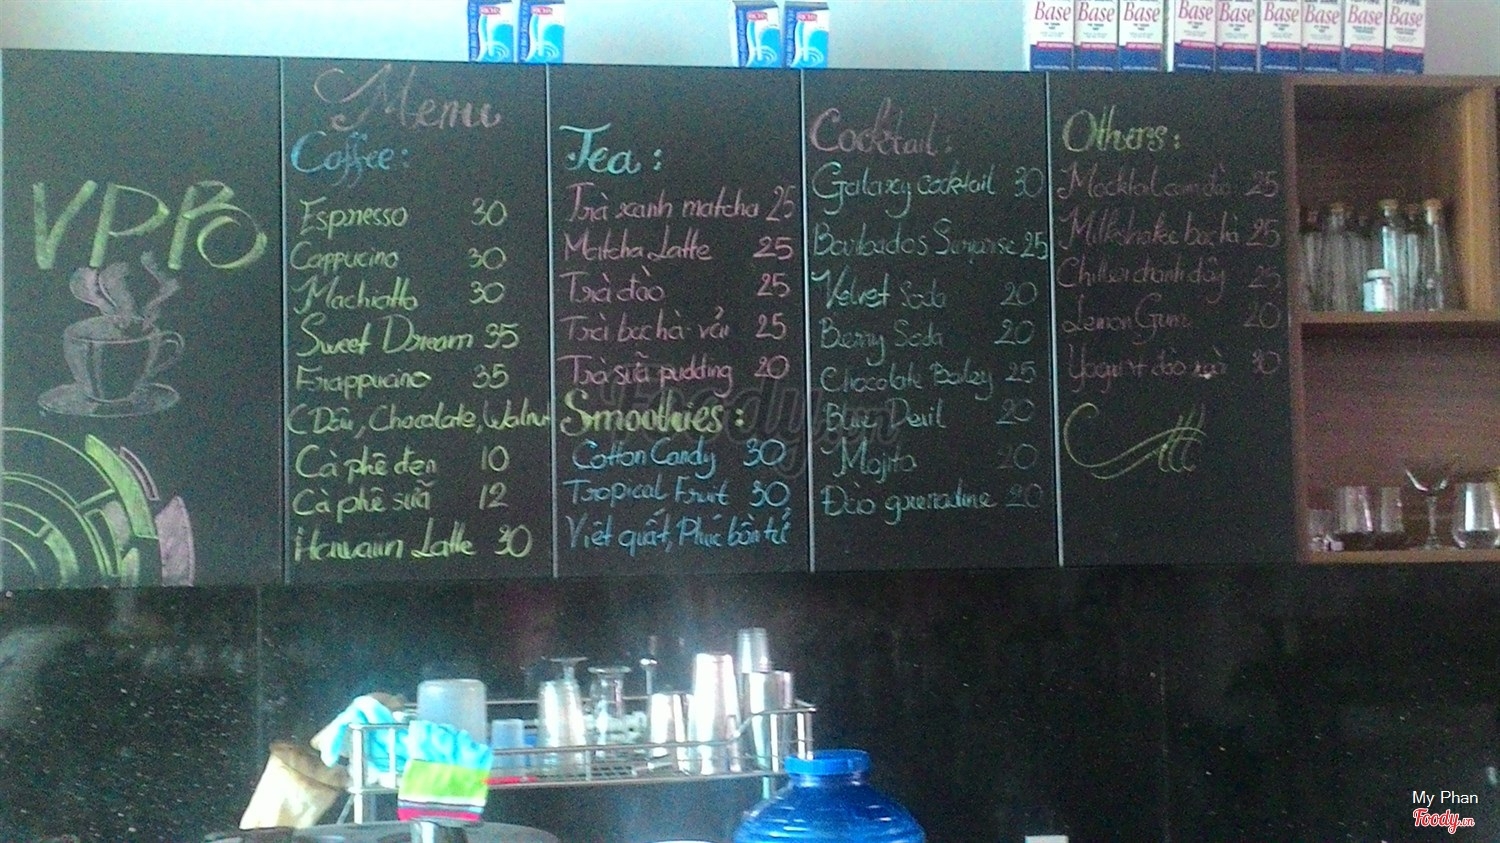 Base Base Base Base Base Base Base Base Base
VPPO
Menu
Coffee:
Espresso 30
Cappucino 30
Machiatto 30
Sweet Dream 35
Frappucino 35
(Dâu, Chocolate, Walnut
Cà phê đen 10
Cà phê sữa 12
Hawaiin Latte 30
Tea:
Trà xanh matcha 25
Matcha Latte 25
Trà đào 25
Trà bạc hà vải 25
Trà sữa pudding 20
Smoothies:
Cotton Candy 30
Tropical Fruit 30
Việt quất, Phúc bồn tử
Cocktail:
Galaxy cocktail 30
Barbados Sunrise 25
Velvet Soda 20
Berry Soda 20
Chocolate Bailey 25
Blue Devil 20
Mojito 20
Đào grenadine 20
Others:
Mocktail cam đào 25
Milkshake bạc hà 25
Chiller chanh dây 25
Lemon Gum 20
Yogurt đào
Foody.vn
My Phan
Foody.vn